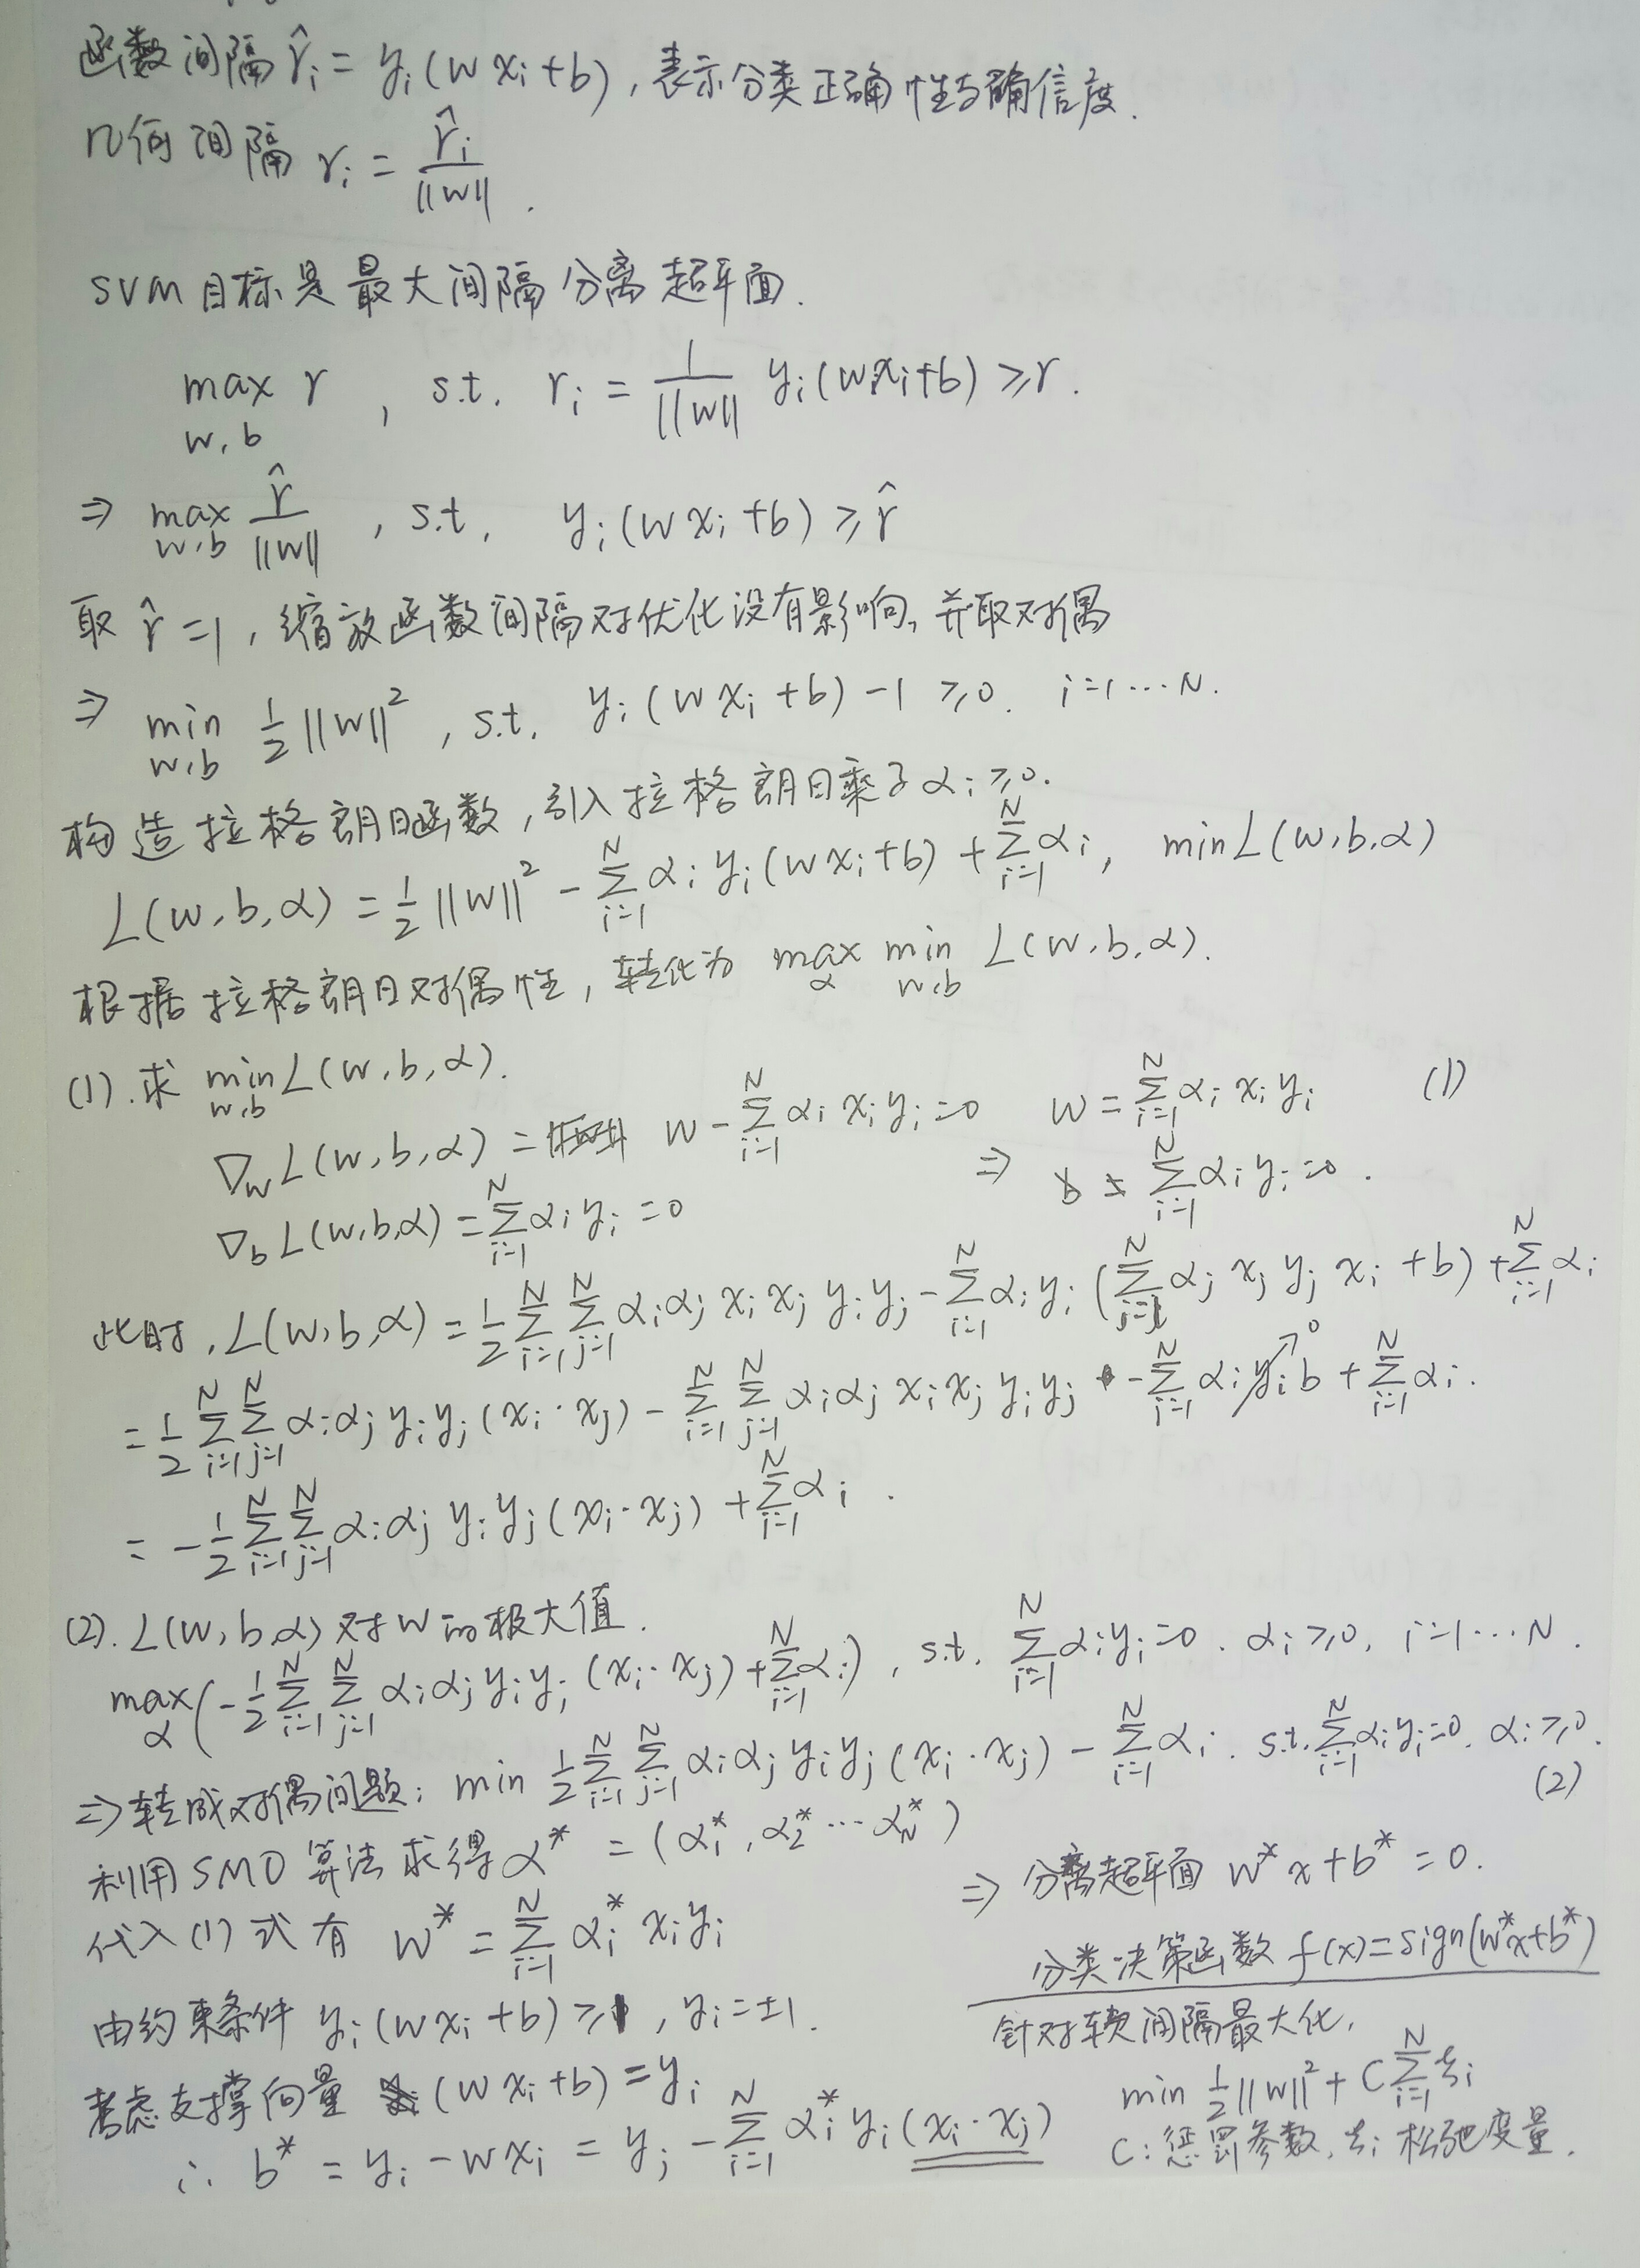 函数间隔 r̂ᵢ = yᵢ(wxᵢ+b),表示分类正确性与确信度.
几何间隔 rᵢ = r̂ᵢ/||w|| .
SVM目标是最大间隔分离超平面.
max_{w,b} r , s.t. rᵢ = 1/||w|| yᵢ(wxᵢ+b) ≥ r.
⇒ max_{w,b} r̂/||w|| , s.t. yᵢ(wxᵢ+b) ≥ r̂
取 r̂ =1, 缩放函数间隔对优化没有影响, 并取对偶
⇒ min_{w,b} ½||w||² , s.t. yᵢ(wxᵢ+b) -1 ≥0. i=1…N.
构造拉格朗日函数,引入拉格朗日乘子αᵢ≥0.
L(w,b,α) = ½||w||² - ∑_{i=1}^N αᵢyᵢ(wxᵢ+b) + ∑_{i=1}^N αᵢ, min L(w,b,α)
根据拉格朗日对偶性,转化为 max_α min_{w,b} L(w,b,α).
(1).求 min_{w,b} L(w,b,α).
∇_w L(w,b,α) = w - ∑_{i=1}^N αᵢxᵢyᵢ=0 ⇒ w = ∑_{i=1}^N αᵢxᵢyᵢ (1)
∇_b L(w,b,α) = ∑_{i=1}^N αᵢyᵢ =0 ∑_{i=1}^N αᵢyᵢ=0 .
此时,L(w,b,α) = ½ ∑_{i=1}^N ∑_{j=1}^N αᵢαⱼxᵢxⱼyᵢyⱼ - ∑_{i=1}^N αᵢyᵢ(∑_{j=1}^N αⱼxⱼyⱼxᵢ+b) + ∑_{i=1}^N αᵢ
= ½ ∑_{i=1}^N ∑_{j=1}^N αᵢαⱼyᵢyⱼ(xᵢ·xⱼ) - ∑_{i=1}^N ∑_{j=1}^N αᵢαⱼxᵢxⱼyᵢyⱼ - ∑_{i=1}^N αᵢyᵢb ↗0 + ∑_{i=1}^N αᵢ.
= -½ ∑_{i=1}^N ∑_{j=1}^N αᵢαⱼyᵢyⱼ(xᵢ·xⱼ) + ∑_{i=1}^N αᵢ .
(2).L(w,b,α)对w的极大值.
max_α(-½ ∑_{i=1}^N ∑_{j=1}^N αᵢαⱼyᵢyⱼ(xᵢ·xⱼ) + ∑_{i=1}^N αᵢ) , s.t. ∑_{i=1}^N αᵢyᵢ=0. αᵢ≥0, i=1…N.
⇒转成对偶问题: min ½ ∑_{i=1}^N ∑_{j=1}^N αᵢαⱼyᵢyⱼ(xᵢ·xⱼ) - ∑_{i=1}^N αᵢ. s.t. ∑_{i=1}^N αᵢyᵢ=0. αᵢ≥0. (2)
利用SMO算法求得α* = (α₁*, α₂* … α_N*)
代入(1)式有 w* = ∑_{i=1}^N αᵢ* xᵢyᵢ
由约束条件 yᵢ(wxᵢ+b) ≥1, yᵢ=±1.
考虑支撑向量 (wxᵢ+b) = yᵢ
∴ b* = yᵢ - wxᵢ = yⱼ - ∑_{i=1}^N αᵢ* yᵢ(xᵢ·xⱼ)
⇒ 分离超平面 w*x+b* = 0.
分类决策函数 f(x)=sign(w*x+b*)
针对软间隔最大化,
min ½||w||² + C∑_{i=1}^N ξᵢ
C:惩罚参数, ξᵢ 松弛变量.